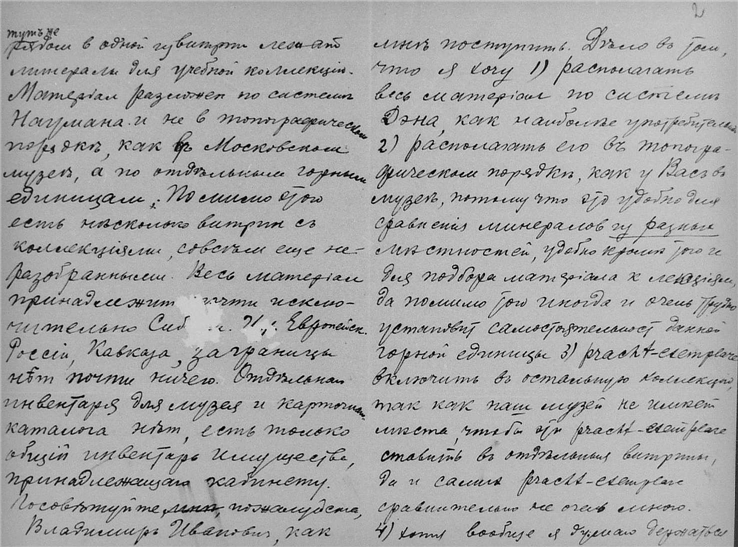 2
тутъ не
рядом в одной витрин лежат
минералы для учебной коллекціи.
Матеріал разложен по системѣ
Наумана и не в топографическом
порядкѣ, как в Московском
музеѣ, а по отдѣльным горным
единицам. Помимо этого
есть нѣсколько витрин съ
коллекціями, совсѣм еще не-
разобранными. Весь матеріал
принадлежит почти исклю-
чительно Сиб Европейск.
Россіи, Кавказа, заграницы
нѣт почти ничего. Отдѣльнаго
инвентаря для музея и карточнаго
каталога нѣт, есть только
общій инвентарь имущества,
принадлежащаго кабинету.
Посовѣтуйте, мнѣ пожалуйста,
Владимиръ Иванович, как
мнѣ поступить. Дѣло в том,
что я хочу 1) располагать
весь матеріал по системѣ
Дэна, как наиболѣе употребительной
2) располагать его въ топогра-
фическом порядкѣ, как у Васъ в
музеѣ, потому что это удобно для
сравненія минералов из разных
мѣстностей, удобно кромѣ того и
для подбора матеріала к лекціям,
да помимо того иногда и очень трудно
установить самостоятельность данной
горной единицы 3) pracht-exemplare
включить въ остальную коллекцію,
так как наш музей не имѣет
мѣста, чтобы эти pracht-exemplare
ставить въ отдѣльныя витрины,
да и самих pracht-exemplare
сравнительно не очень много.
4) хотя вообще я думаю держаться